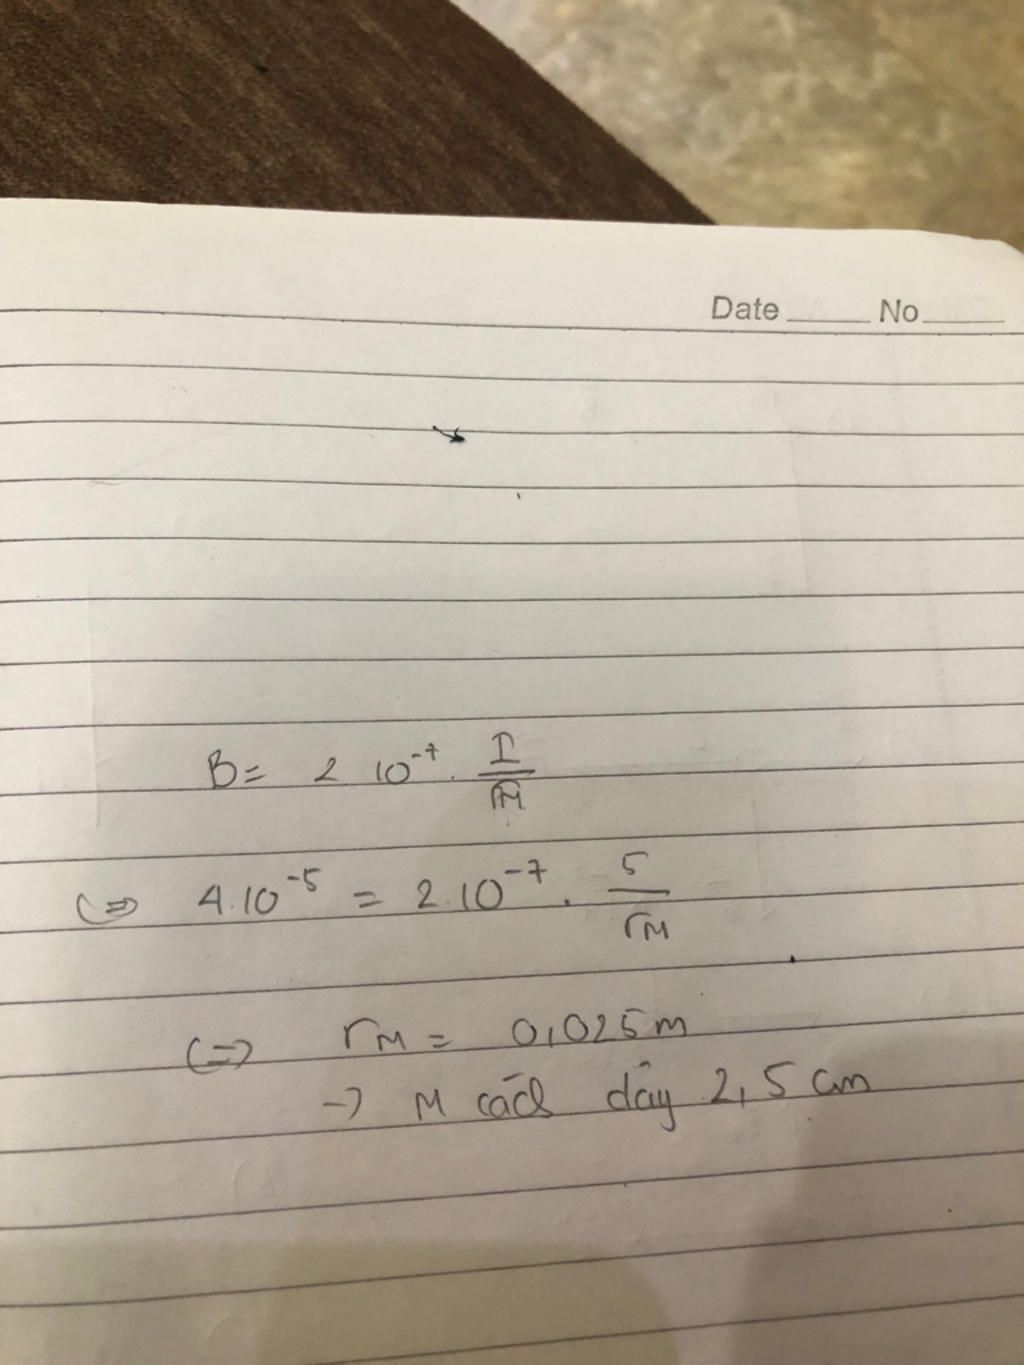 Date _____ No _____
B = 2 10⁻⁷ . I / rM
(=) 4.10⁻⁵ = 2.10⁻⁷ . 5 / rM
(=) rM = 0,025m
-) M cách dây 2,5 cm